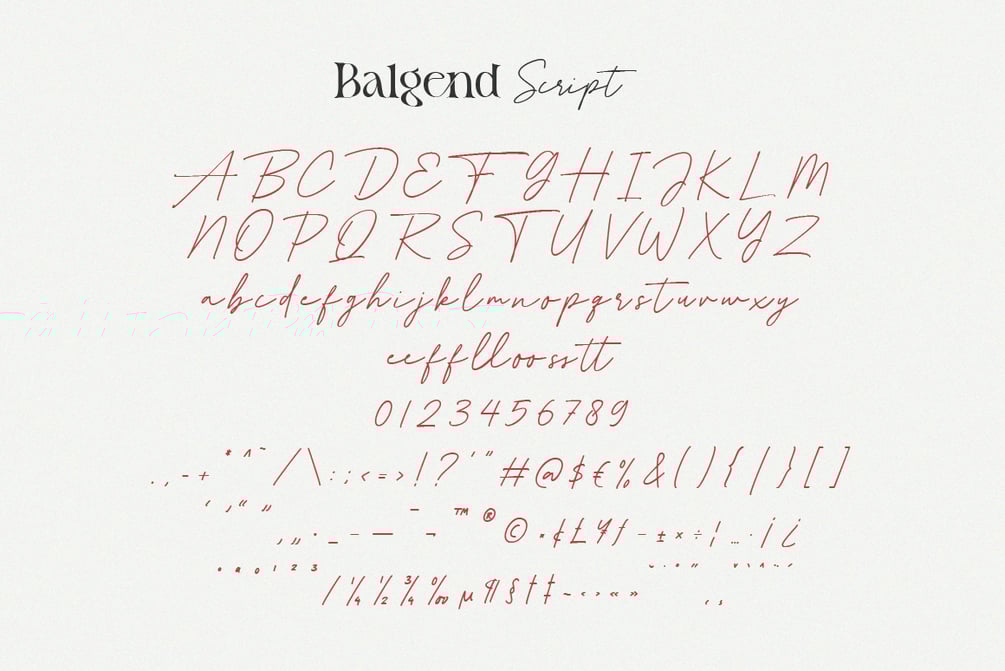 Balgend Script
ABCDEFGHIJKLM
NOPQRSTUVWXYZ
abcdefghijklmnopqrstuvwxyz
eefflloosstt
0123456789
. , - + * ^ ~ / \ : ; < = > ! ? ' " # @ $ € % & ( ) { | } [ ]
‘ ‚ “ ”
, „ · _ – — ¯ ¬ ™ ® © • ¢ £ ¥ ƒ − ± × ÷ ¦ … · ¡ ¿
° ª º ¹ ² ³
⁄ ¼ ½ ¾ ‰ µ ¶ § † ‡ ~ ‹ › « »